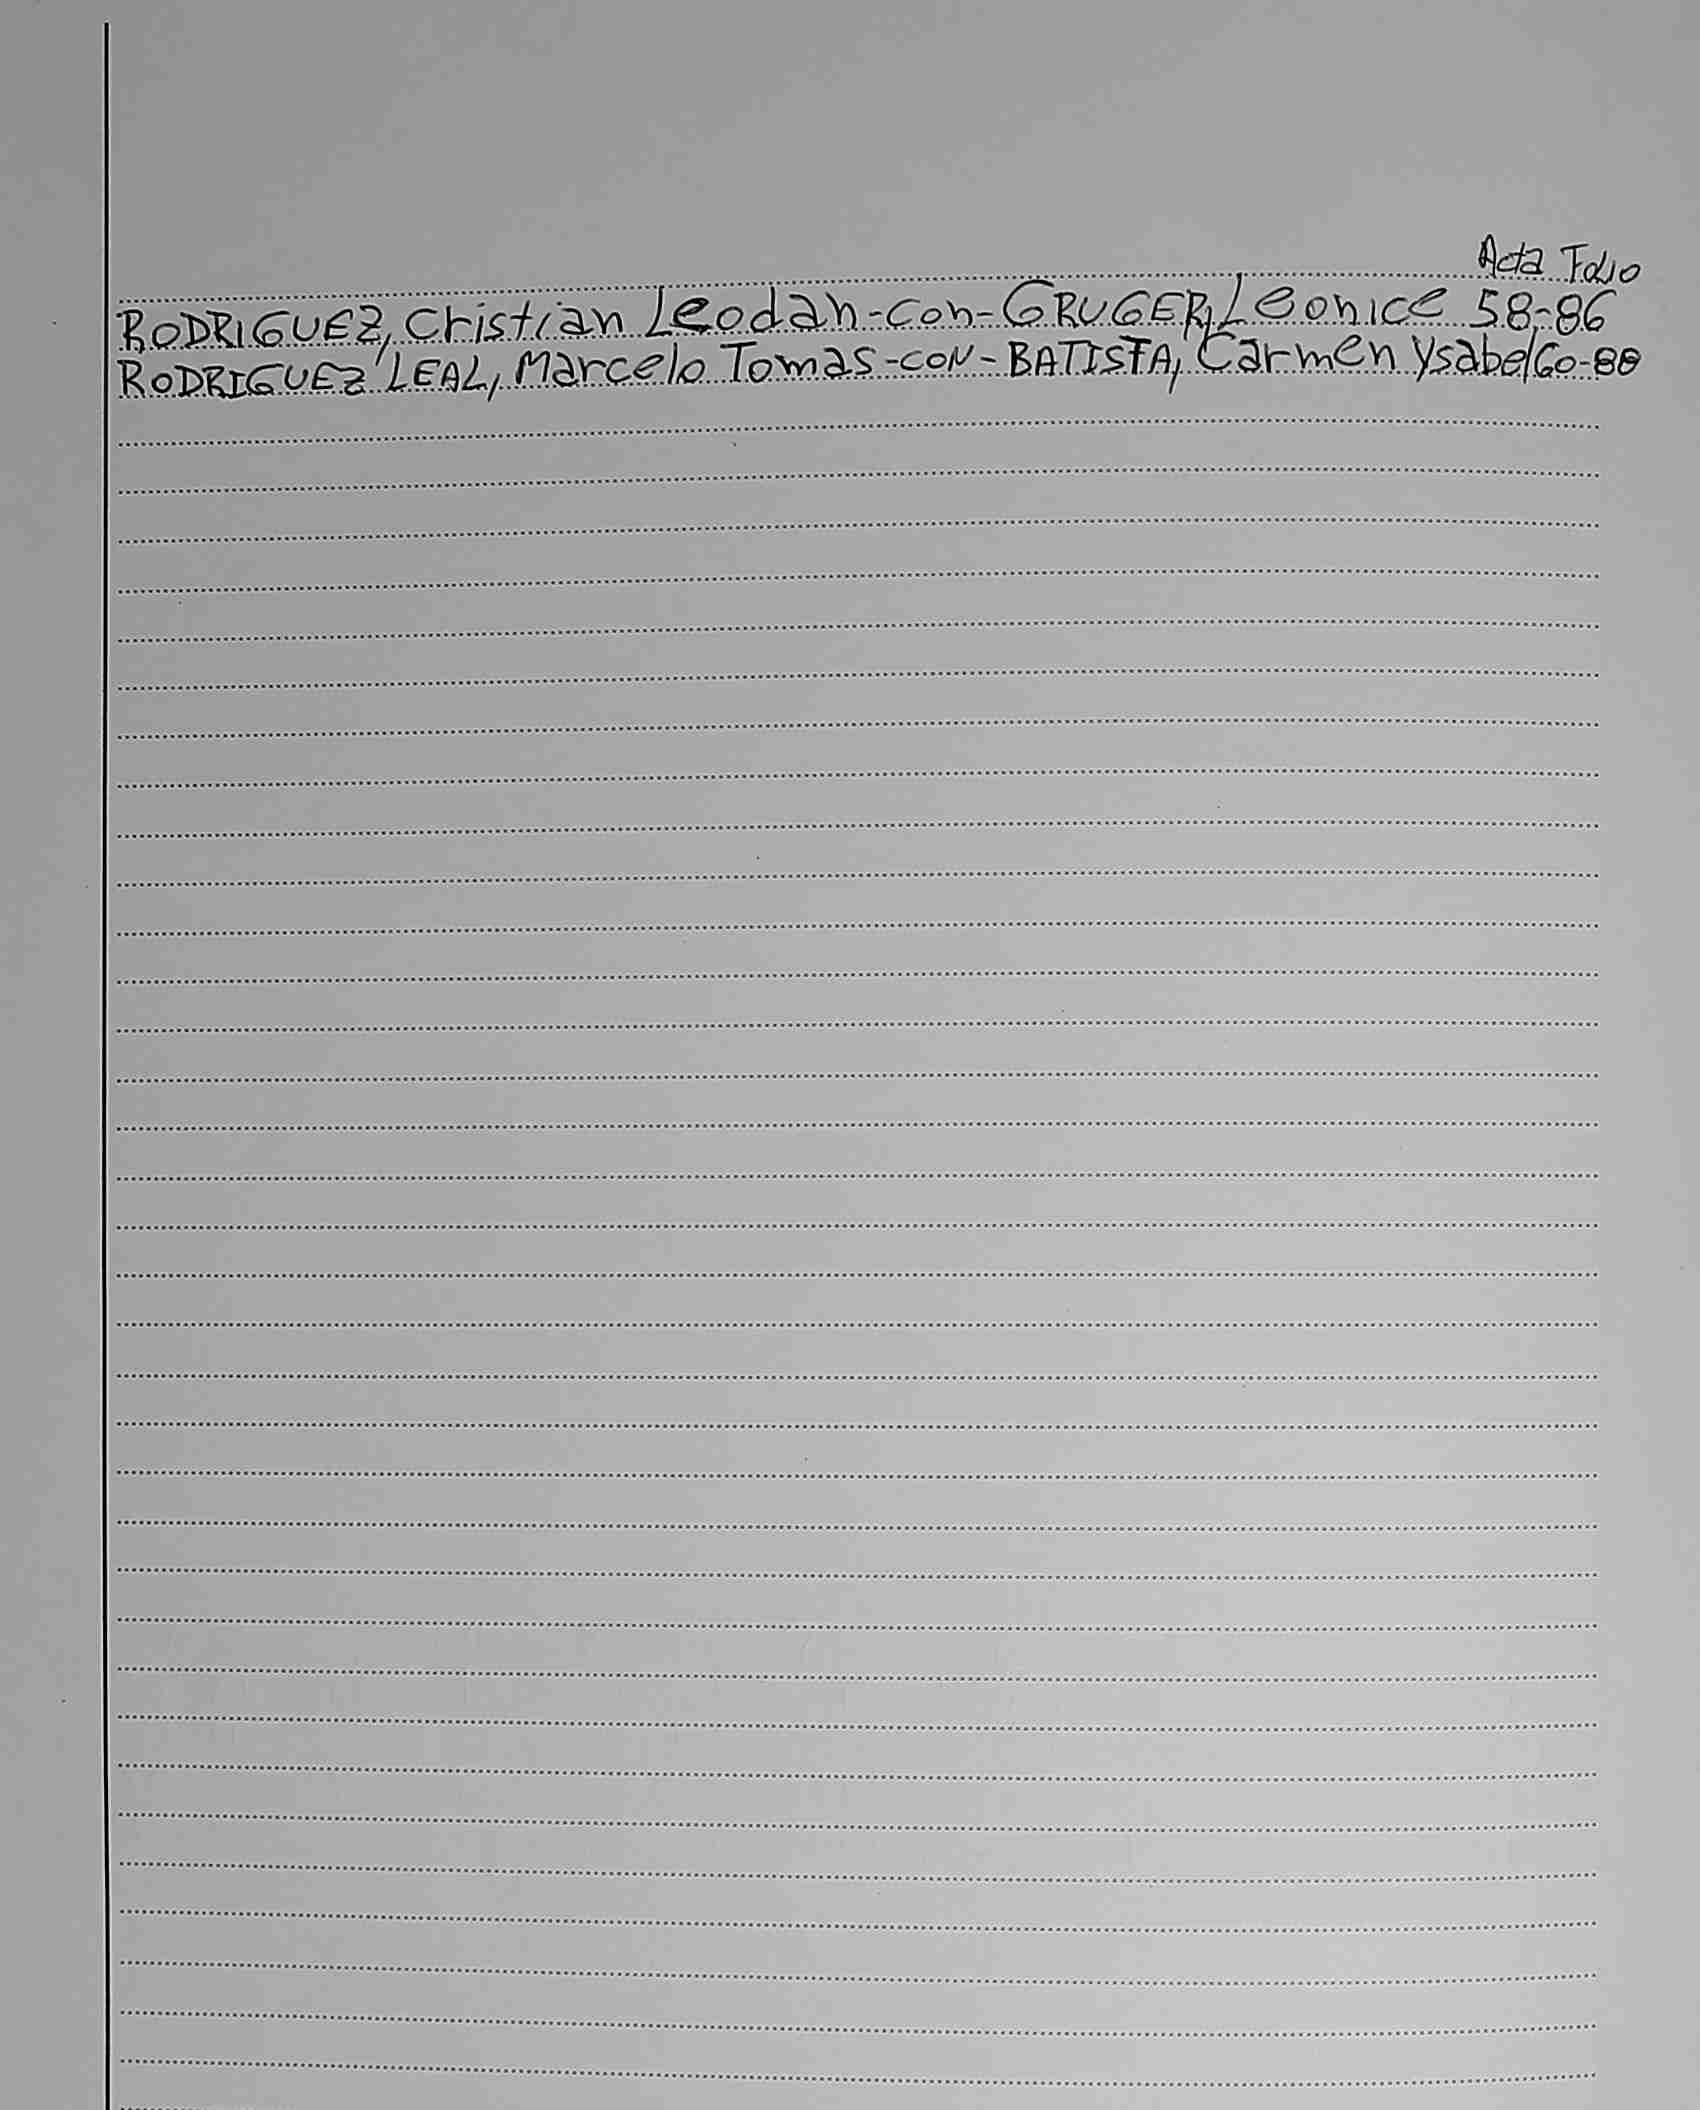 Acta Folio
RODRIGUEZ, Cristian Leodan-con-GRUGER, Leonice 58-86
RODRIGUEZ LEAL, Marcelo Tomas-coN-BATISTA, Carmen Ysabel 60-88